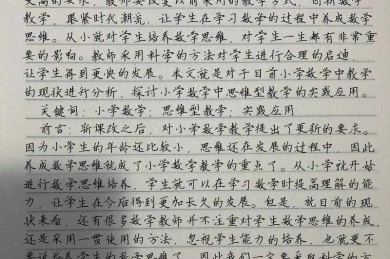 更高的要求，教师要改变以前采用的教学方式，创新数学
教学，跟紧时代潮流，让学生在学习数学的过程中养成数学
思维。从小就对学生培养数学思维，对学生一生都有非常重
要的影响。教师采用科学的方法对学生进行合理的启迪，
让学生得到更快的发展。本文就是对于目前小学数学中教学
的现状进行分析，探讨小学数学中思维型教学的实践应用。
关键词：小学数学；思维型教学；实践应用
前言：新课改之后，对小学数学教学提出了更新的要求。
因为小学生的年龄还比较小，思维还在发展的过程中，因此
养成数学思维就成了小学数学教学的重点了。从小学就开始
进行数学思维培养，学生就可以在学习数学时提高理解的能
力，让学生在今后得到更加长久的发展。但是，就目前的现
状来看，还有很多数学教师并不注重对学生数学思维的养成，
还是采用一贯使用的方法，忽视学生能力的培养，也就更不
要说培养学生的数学思维了。因此我们一定要采取科学的方